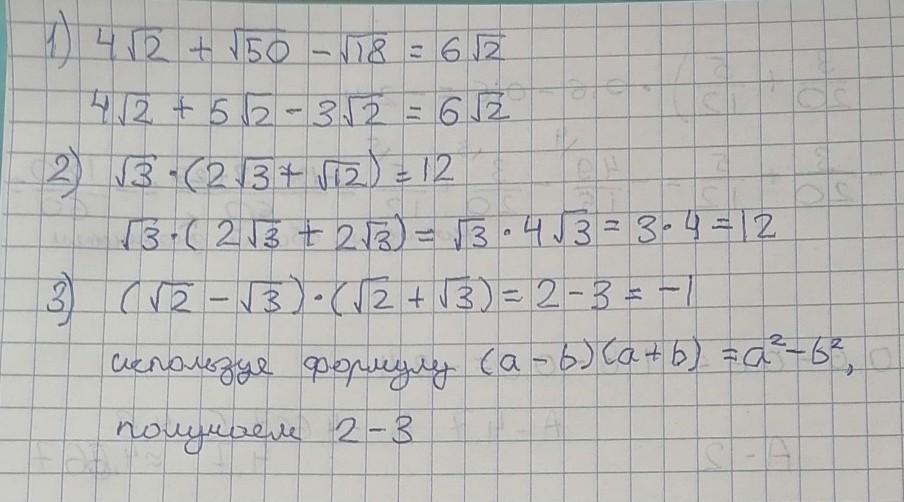 1) 4√2 + √50 - √18 = 6√2
4√2 + 5√2 - 3√2 = 6√2
2) √3 · (2√3 + √12) = 12
√3 · (2√3 + 2√3) = √3 · 4√3 = 3 · 4 = 12
3) (√2 - √3) · (√2 + √3) = 2 - 3 = -1
используя формулу (a - b)(a + b) = a² - b²,
получаем 2 - 3